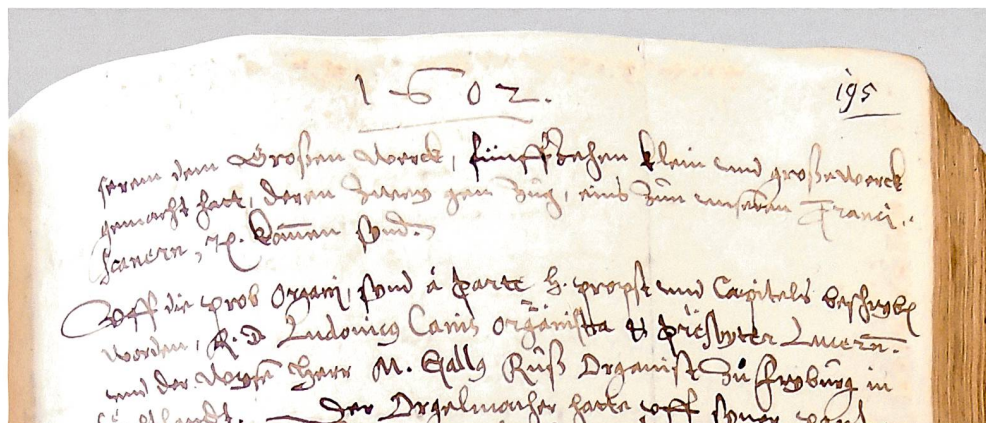 1602.
195
serem dem Großen werck, fünffzehen klein und große werck
gemacht hatt, deren zween gen Zug, eins zůn unseren Franci-
scanern, kommen synd.
Uff die prob Organi, synd à parte H. propst und Capitels beschryben
worden, R. D. Ludovicus Canis organista et presbyter Lucern.
und der wyse Herr M. Gally Růß Organist zů Fryburg in
Der Orgelmacher hatte uff syner